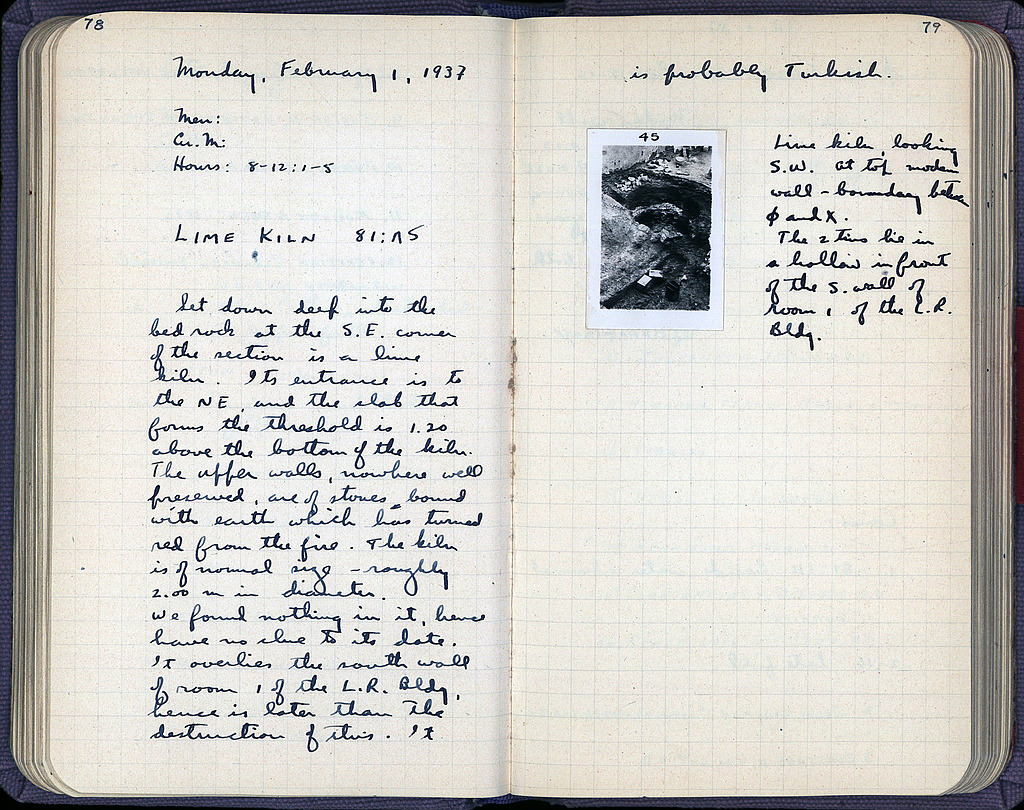 78
Monday, February 1, 1937
Men:
Cu. M:
Hours: 8-12:1-5
LIME KILN 81:ΛΣ
Set down deep into the
bed rock at the S.E. corner
of the section is a lime
kiln. Its entrance is to
the NE, and the slab that
forms the threshold is 1.20
above the bottom of the kiln.
The upper walls, nowhere well
preserved, are of stones bound
with earth which has turned
red from the fire. The kiln
is of normal size - roughly
2.00 m in diameter.
We found nothing in it, hence
have no clue to its date.
It overlies the south wall
of room 1 of the L.R. Bldg,
hence is later than the
destruction of this. It
79
is probably Turkish.
45
Lime kiln, looking
S.W. at top modern
wall - boundary betw
Φ and X.
The 2 tins lie in
a hollow in front
of the S. wall of
room 1 of the L.R.
Bldg.